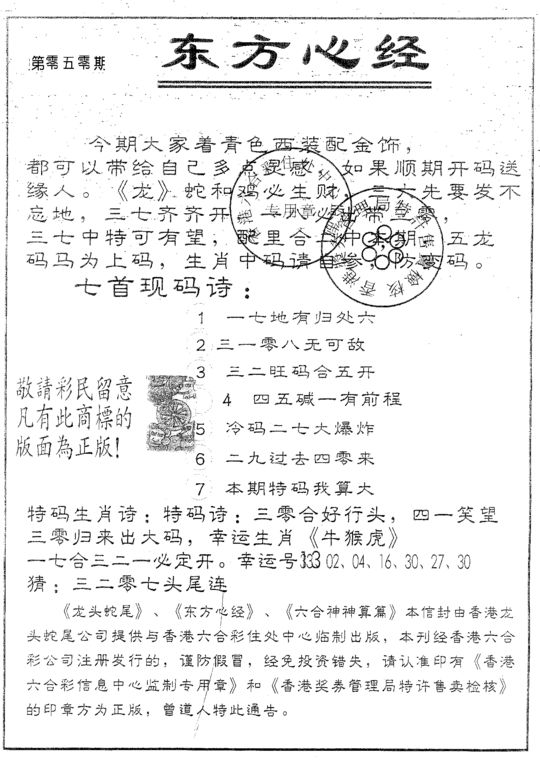 第零五零期
东方心经
今期大家着青色西装配金饰，
都可以带给自己多点灵感，如果顺期开码送
缘人。《龙》蛇和鸡必生财，三六先要发不
忘地，三七齐齐开，一八必出带三零，
三七中特可有望，配里合二中本期，五龙
码马为上码，生肖中码请自参，防变码。
七首现码诗：
1 一七地有归处六
2 三一零八无可敌
3 三二旺码合五开
4 四五碱一有前程
5 冷码二七大爆炸
6 二九过去四零来
7 本期特码我算大
敬請彩民留意
凡有此商標的
版面為正版!
特码生肖诗：特码诗：三零合好行头，四一笑望
三零归来出大码，幸运生肖《牛猴虎》
一七合三二一必定开。幸运号333 02、04、16、30、27、30
猜：三二零七头尾连
《龙头蛇尾》、《东方心经》、《六合神神算篇》本信封由香港龙
头蛇尾公司提供与香港六合彩住处中心临制出版，本刊经香港六合
彩公司注册发行的，谨防假冒，经免投资错失，请认准印有《香港
六合彩信息中心监制专用章》和《香港奖券管理局特许售卖检核》
的印章方为正版，曾道人特此通告。
专用章